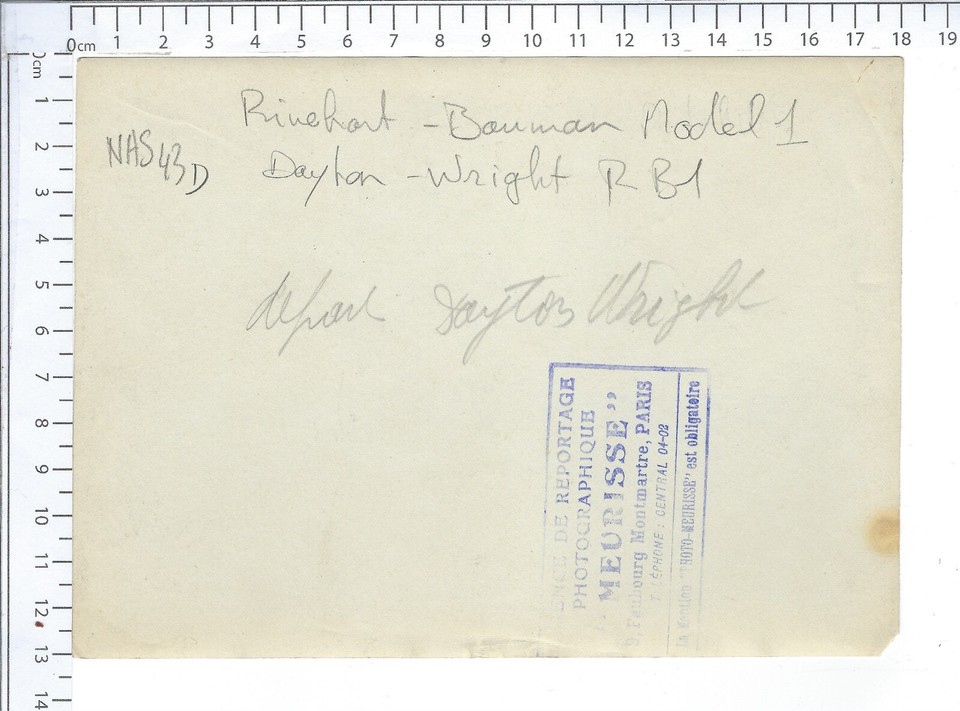 0cm 1 2 3 4 5 6 7 8 9 10 11 12 13 14 15 16 17 18 19
0cm 1 2 3 4 5 6 7 8 9 10 11 12 13 14
Rinehart - Bauman Model 1
NAS43D
Dayton - Wright RB1
départ Dayton Wright
DE REPORTAGE
PHOTOGRAPHIQUE
"MEURISSE"
9, Faubourg Montmartre, PARIS
TÉLÉPHONE : CENTRAL 04-02
la mention "PHOTO-MEURISSE" est obligatoire